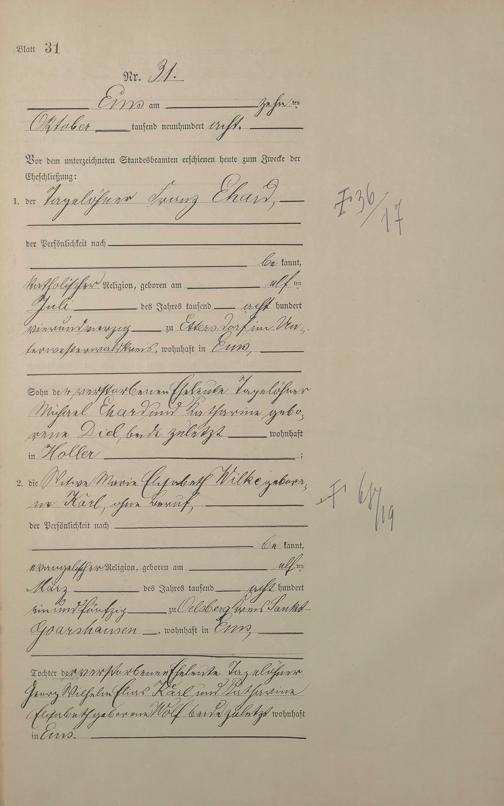 Blatt 31
Nr. 31.
Ems am zehnten
Oktober tausend neunhundert acht.
Vor dem unterzeichneten Standesbeamten erschienen heute zum Zwecke der
Eheschließung:
1. der Tagelöhner Franz Ehard,
der Persönlichkeit nach
be kannt,
katholischer Religion, geboren am elften
Juli des Jahres tausend acht hundert
vierundvierzig zu Ettersdorf im Un-
terwesterwaldkreis, wohnhaft in Ems,
Sohn der verstorbenen Eheleute Tagelöhner
Michael Ehard und Katharine, gebo-
rene Diel, beide zuletzt wohnhaft
in Holler ;
2. die Witwe Marie Elisabeth Wilke gebore-
ne Kärl, ohne Beruf,
der Persönlichkeit nach
be kannt,
evangelischer Religion, geboren am elften
März des Jahres tausend acht hundert
einundfünfzig zu Oelsberg Kreis Sankt
Goarshausen, wohnhaft in Ems,
Tochter der verstorbenen Eheleute Tagelöhner
Georg Wilhelm Elias Kärl und Katharine
Elisabeth geborene Wolf beide zuletzt wohnhaft
in Ems.
36/17
68/19